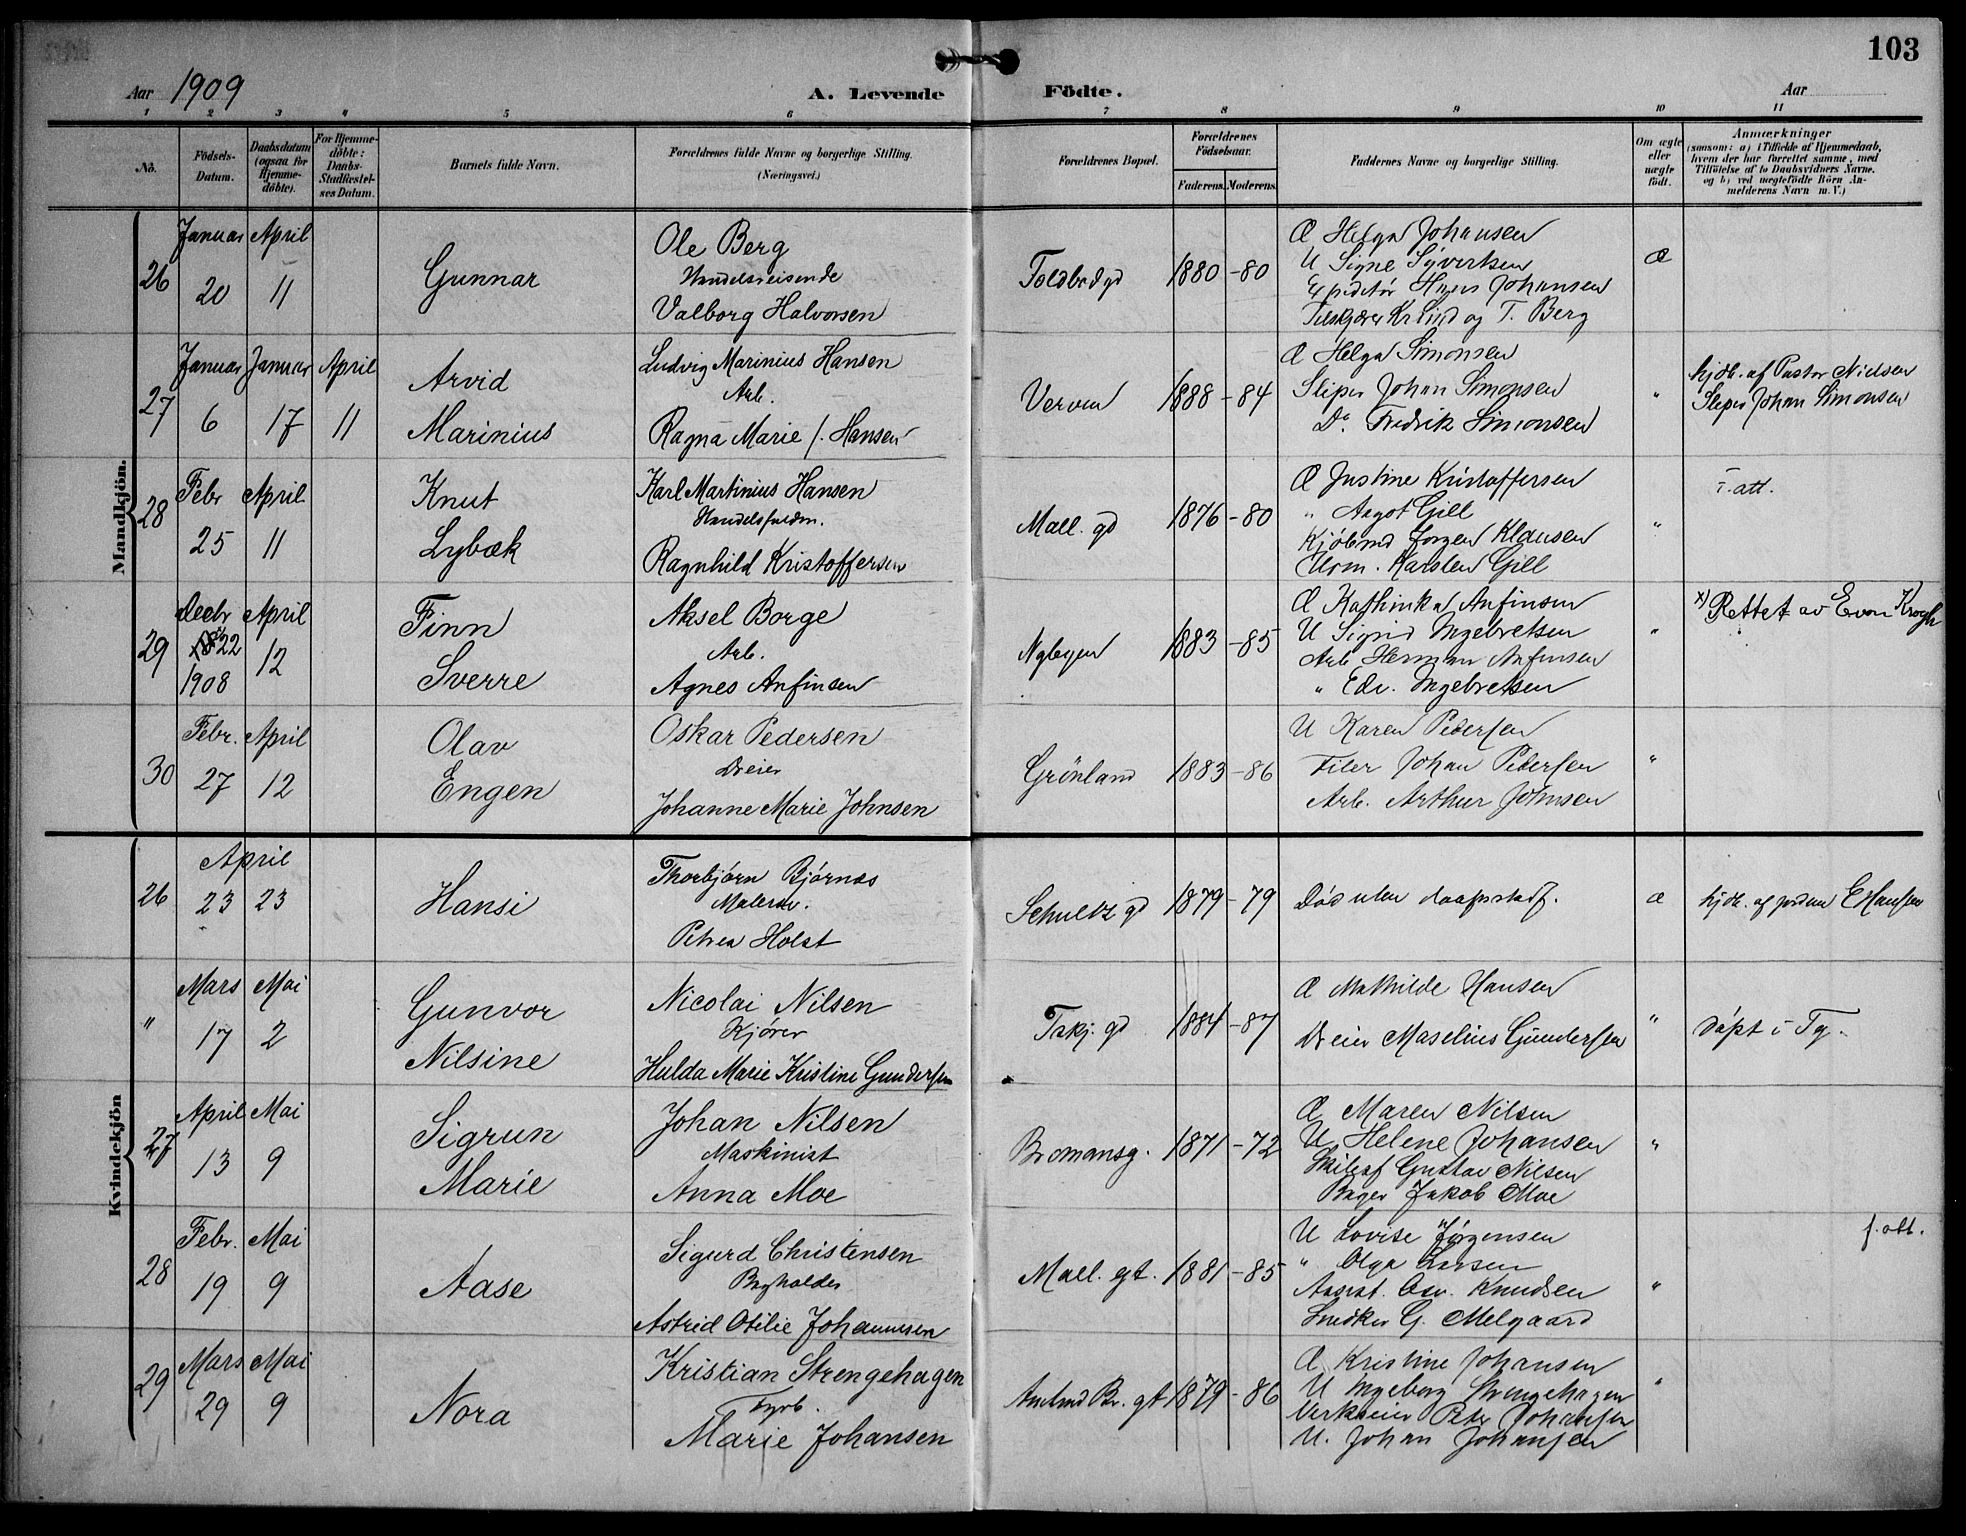 103
Aar 1909
A. Levende Födte.
Aar
1 2 3 4 5 6 7 8 9 10 11
No.
Födsels-Datum.
Daabsdatum (ogsaa for Hjemme-döbte).
For Hjemme-döbte: Daabs-Stadfæstel-ses Datum.
Barnets fulde Navn.
Forældrenes fulde Navne og borgerlige Stilling.
(Næringsvei.)
Forældrenes Bopæl.
Forældrenes Födselsaar.
Faderens. Moderens.
Faddernes Navne og borgerlige Stilling.
Om ægte eller uægte födt.
Anmærkninger
(saasom: a) i Tilfælde af Hjemmedaab,
hvem der har forrettet samme, med
Tilföielse af to Daabsvidners Navne.
og b) ved uægtefödte Börn An-
melderens Navn m. V.)
Mandkjön.
26
Januar 20
April 11
Gunnar
Ole Berg
Handelsreisende
Valborg Halvorsen
Toldbodgd
1880 -80
Æ Helga Johansen
U Signe Syvertsen
Expeditör Hans Johansen
og T. Berg
Æ
27
Januar 6
Januar 17
April 11
Arvid
Marinius
Ludvig Marinius Hansen
Arb.
Ragna Marie f. Hansen
Verven
1888 -84
Æ Helga Simonsen
Sliper Johan Simonsen
Do. Fredrik Simonsen
"
hjdb. af Pastor Nielsen
Sliper Johan Simonsen
28
Febr 25
April 11
Knut
Lybæk
Karl Martinius Hansen
Handelsfuldm.
Ragnhild Kristoffersen
Mall. gd
1876 -80
Æ Justine Kristoffersen
" Aagot Gill
Kjöbmd Jörgen Klausen
Karsten Gill
"
f. att.
29
Decbr 22
1908
April 12
Finn
Sverre
Aksel Borge
Arb.
Agnes Anfinsen
Nybyen
1883 -85
Æ Kathinka Anfinsen
U Sigrid Ingebretsen
Arb. Herman Anfinsen
" Edv. Ingebretsen
"
x) Rettet av Evon Krogh
30
Febr. 27
April 12
Olav
Engen
Oskar Pedersen
Dreier
Johanne Marie Johnsen
Grönland
1883 -86
U Karen Pedersen
Filer Johan Pedersen
Arb. Arthur Johnsen
"
Kvindekjön
26
April
23 23
Hansi
Thorbjörn Björnæs
Malersv.
Petrea Holst
Schultz gd
1879 -79
Död uten daapsstadf.
Æ
hjdb. af jordm E Hansen
"
Mars 17
Mai 2
Gunvor
Nilsine
Nicolai Nilsen
Kjörer
Hulda Marie Kristine Gundersen
Tskj. gd
1884 -87
Æ Mathilde Hansen
Dreier Maselius Gundersen
"
Döpt i Tg.
27
April 13
Mai 9
Sigrun
Marie
Johan Nilsen
Maskinist
Anna Moe
Bromansg.
1871 -72
Æ Maren Nilsen
U Helene Johansen
Gustav Nilsen
Bager Jakob Moe
"
28
Febr. 19
Mai 9
Aase
Sigurd Christensen
Bogholder
Astrid Otilie Johannesen
Mall. gt.
1881 -85
U Lovise Jörgensen
" Olga Larsen
Assist. Osv. Knudsen
Snedker G. Melgaard
"
f. att.
29
Mars 29
Mai 9
Nora
Kristian Strengehagen
Fyrb.
Marie Johansen
Amtmd Br. gt
1879 -86
Æ Kristine Johansen
U Ingeborg Strengehagen
Verkseier Peder Johansen
U. Johan Johansen
"